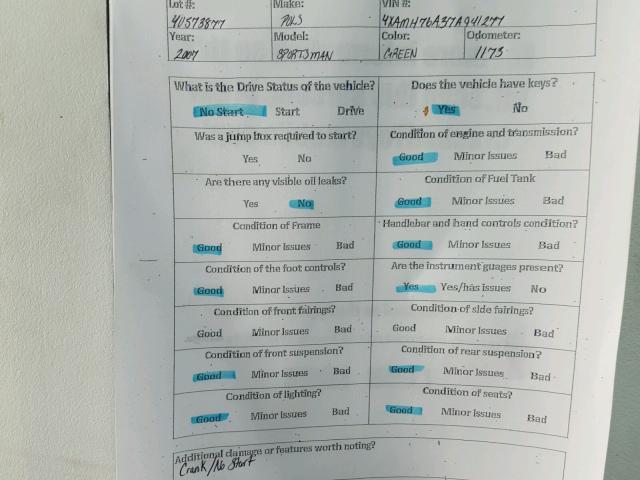 Lot #: Make: VIN #:
41573877 POLS 4XAMH76A37A941277
Year: Model: Color: Odometer:
2007 SPORTSMAN GREEN 1173
What is the Drive Status of the vehicle? Does the vehicle have keys?
No Start Start Drive Yes No
Was a jump box required to start? Condition of engine and transmission?
Yes No Good Minor Issues Bad
Are there any visible oil leaks? Condition of Fuel Tank
Yes No Good Minor Issues Bad
Condition of Frame Handlebar and hand controls condition?
Good Minor Issues Bad Good Minor Issues Bad
Condition of the foot controls? Are the instrument guages present?
Good Minor Issues Bad Yes Yes/has issues No
Condition of front fairings? Condition of side fairings?
Good Minor Issues Bad Good Minor Issues Bad
Condition of front suspension? Condition of rear suspension?
Good Minor Issues Bad Good Minor Issues Bad
Condition of lighting? Condition of seats?
Good Minor Issues Bad Good Minor Issues Bad
Additional damage or features worth noting?
Crank/No Start